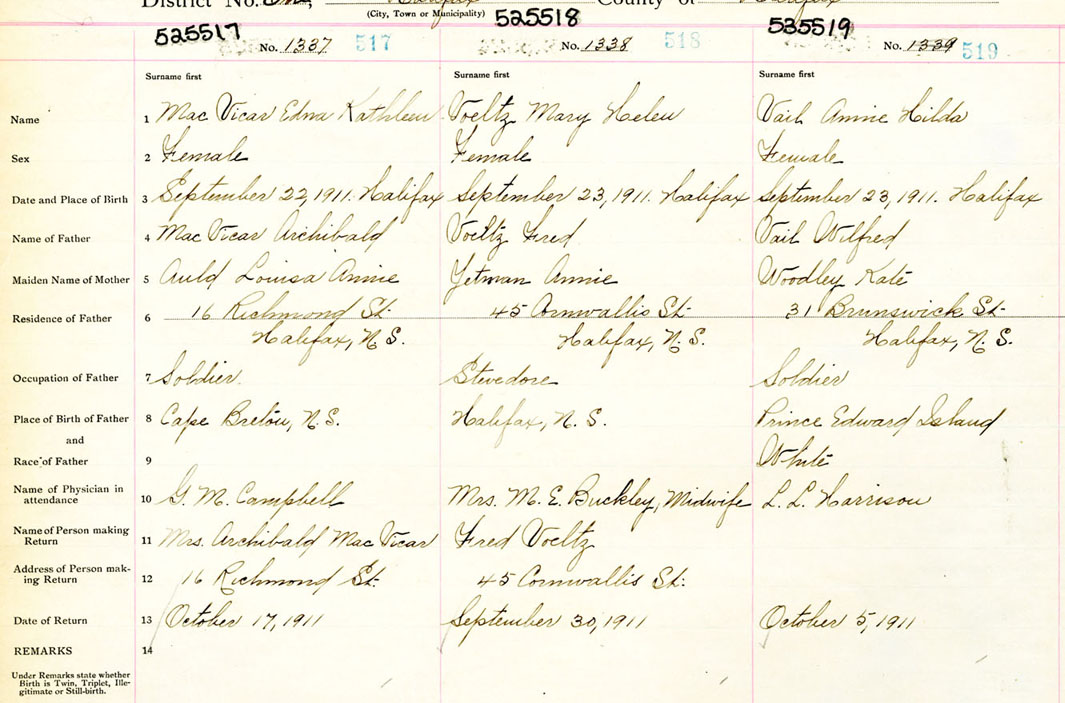 District No. One, Halifax County of Halifax
(City, Town or Municipality)
525517 525518 535519
No. 1337 517 No. 1338 518 No. 1339 519
Surname first Surname first Surname first
Name 1 Mac Vicar Edna Kathleen Voeltz Mary Helen Vail Annie Hilda
Sex 2 Female Female Female
Date and Place of Birth 3 September 22, 1911. Halifax September 23, 1911. Halifax September 23, 1911. Halifax
Name of Father 4 Mac Vicar Archibald Voeltz Fred Vail Wilfred
Maiden Name of Mother 5 Auld Louisa Annie Yetman Annie Woodley Kate
Residence of Father 6 16 Richmond St. 45 Cornwallis St. 31 Brunswick St.
Halifax, N.S. Halifax, N.S. Halifax, N.S.
Occupation of Father 7 Soldier. Stevedore Soldier
Place of Birth of Father 8 Cape Breton, N.S. Halifax, N.S. Prince Edward Island
and
Race of Father 9 White
Name of Physician in
attendance 10 G. M. Campbell Mrs. M. E. Buckley, Midwife L. L. Harrison
Name of Person making
Return 11 Mrs. Archibald Mac Vicar Fred Voeltz
Address of Person mak-
ing Return 12 16 Richmond St. 45 Cornwallis St.
Date of Return 13 October 17, 1911 September 30, 1911 October 5, 1911
REMARKS 14
Under Remarks state whether
Birth is Twin, Triplet, Ille-
gitimate or Still-birth.